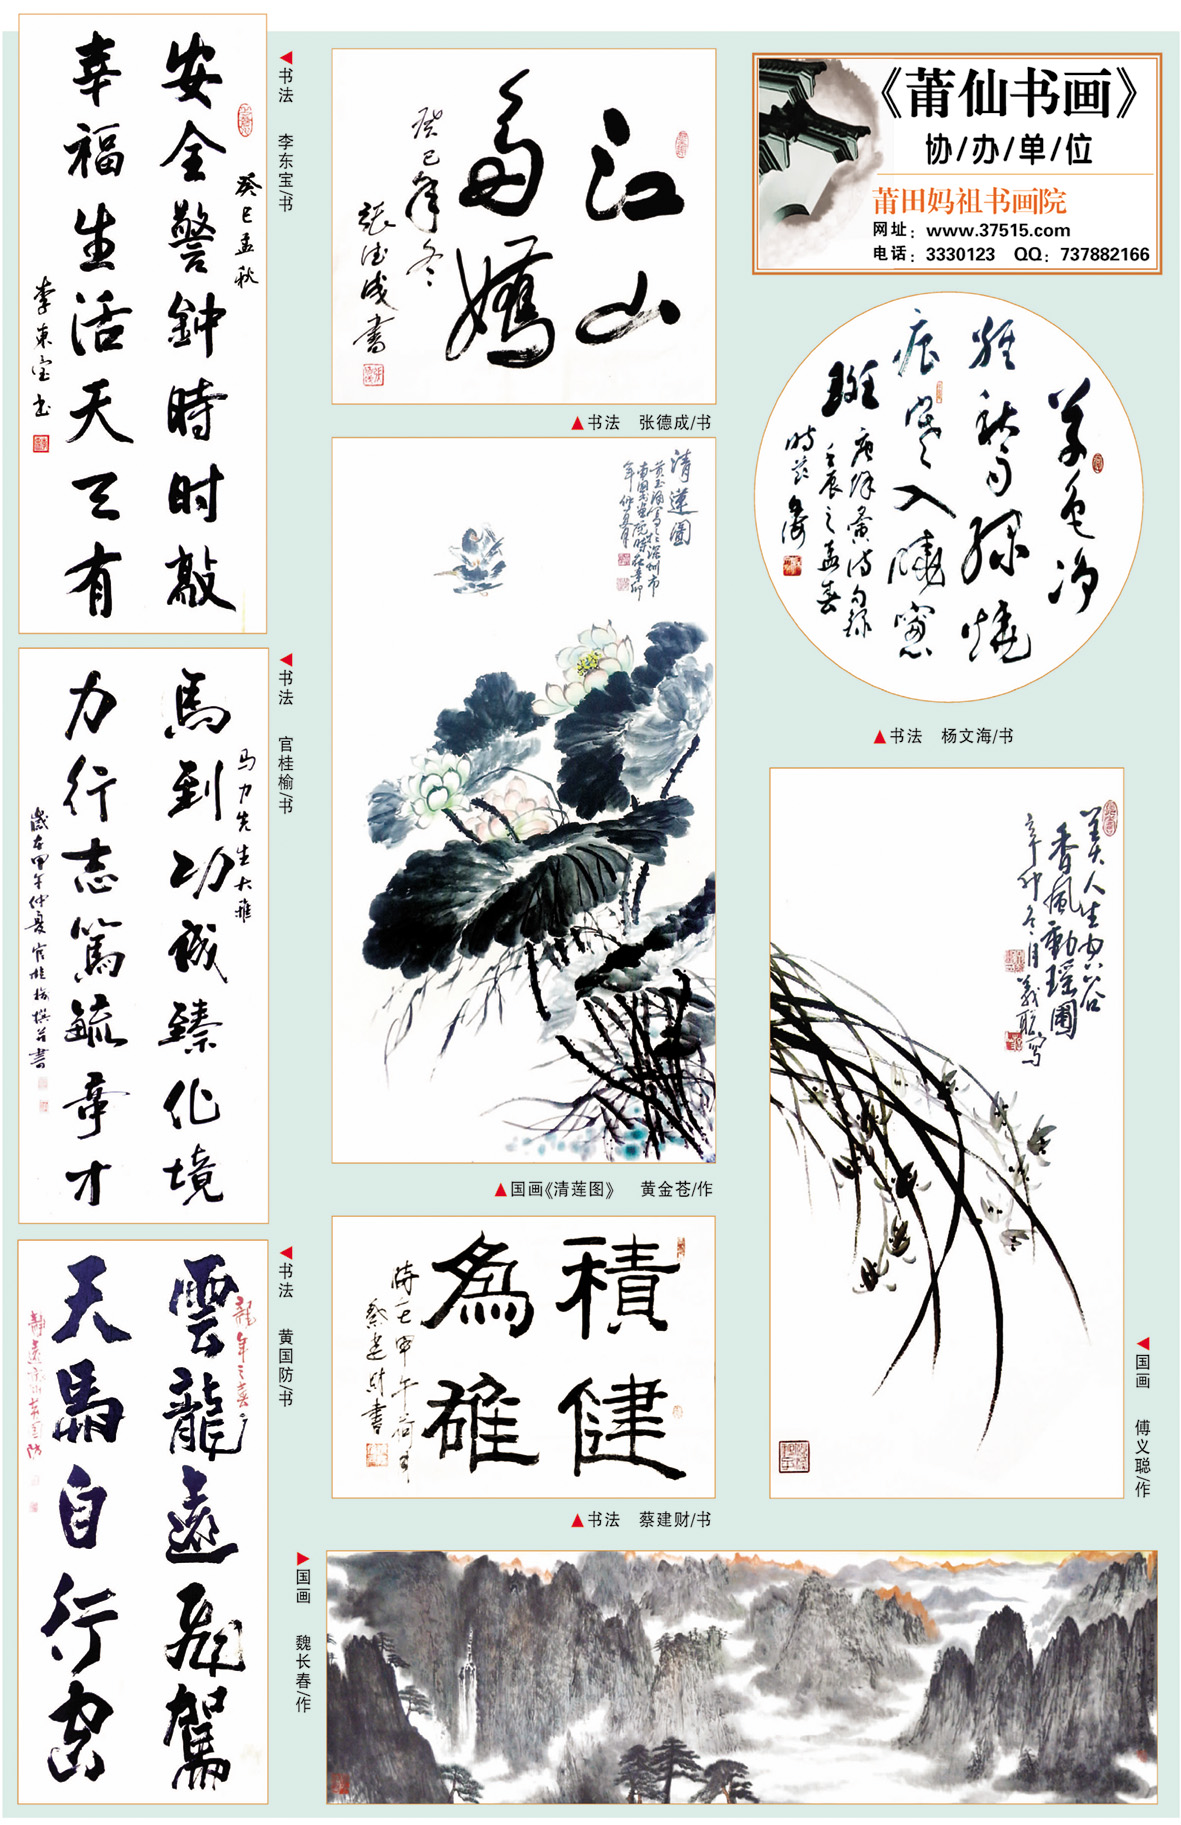 安全警鐘時时敲
幸福生活天天有
癸巳孟秋
李東宝书
书法 李东宝/书
江山
多嬌
癸巳年冬
張德成書
书法 张德成/书
《莆仙书画》
协/办/单/位
莆田妈祖书画院
网址：www.37515.com
电话：3330123 QQ：737882166
书法 杨文海/书
馬到功成臻化境
力行志篤毓奇才
马力先生大雅
歲在甲午仲夏官桂榆撰并書
书法 官桂榆/书
清蓮圖
国画《清莲图》 黄金苍/作
美人生空谷
香風動瑶圃
义聪寫
国画 傅义聪/作
雲龍遠飛駕
天馬自行空
龍年之喜
书法 黄国防/书
積健
為雄
時在甲午荷月
蔡建財書
书法 蔡建财/书
国画 魏长春/作